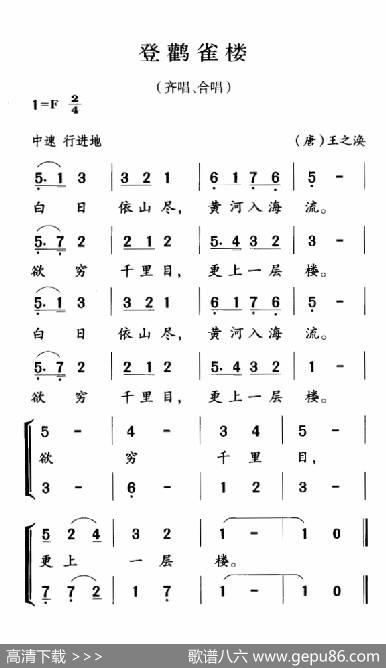 登鹳雀楼
(齐唱、合唱)
1=F 2/4
中速 行进地 (唐)王之涣
5. 1 3 | 3 2 1 | 6 1 7 6 | 5 - |
白 日 依山尽, 黄河入海 流。
5. 7 2 | 2 1 2 | 5. 4 3 2 | 3 - |
欲 穷 千里目, 更上一层 楼。
5. 1 3 | 3 2 1 | 6 1 7 6 | 5 - |
白 日 依山尽, 黄河入海 流。
5. 7 2 | 2 1 2 | 5. 4 3 2 | 1 - |
欲 穷 千里目, 更上一层 楼。
5 - | 4 - | 3 4 | 5 - |
欲 穷 千 里 目,
3 - | 6 - | 1 2 | 3 - |
5 2 4 | 3 2 | 1 - | 1 0 ‖
更 上 一 层 楼。
7 7 2 | 1 7 | 1 - | 1 0 ‖
高清下载 >>> 歌谱八六 www.gepu86.com